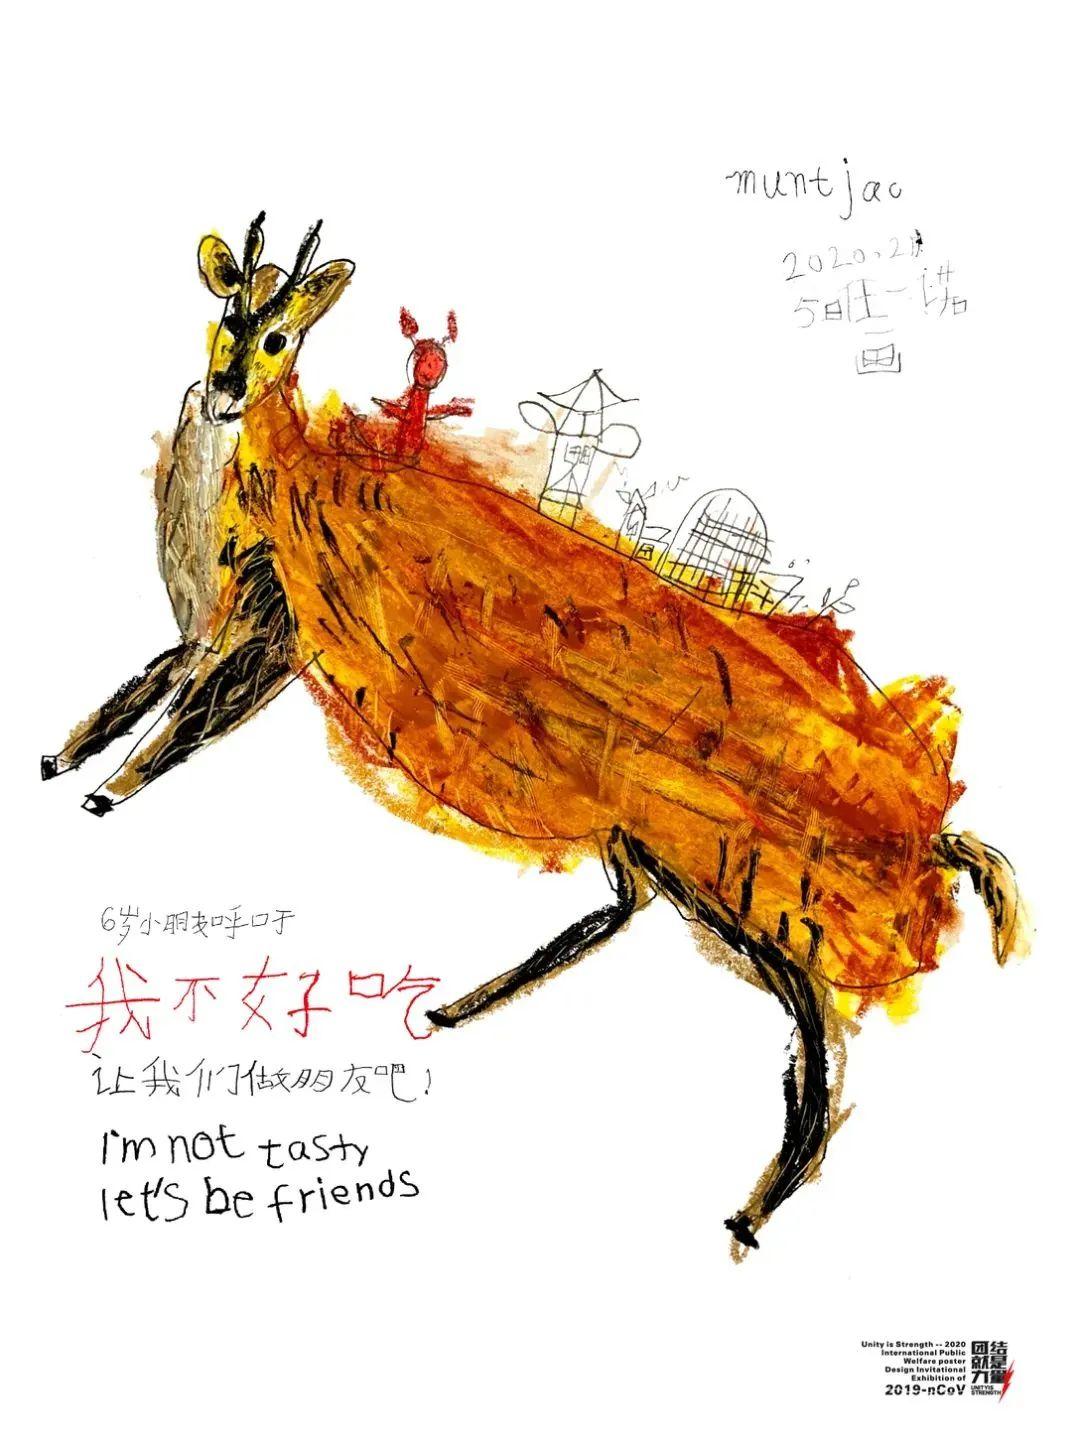 muntjac
2020.2月
5日任一诺
画
6岁小朋友呼吁
我不好吃
让我们做朋友吧！
I'm not tasty
let's be friends
Unity is Strength -- 2020
International Public
Welfare poster
Design Invitational
Exhibition of
2019-nCoV
团结
就是
力量
UNITY IS
STRENGTH